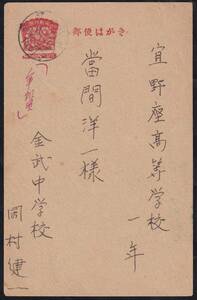 郵便はがき
宜野座高等学校
一年
當間洋一様
金武中学校
岡村健一